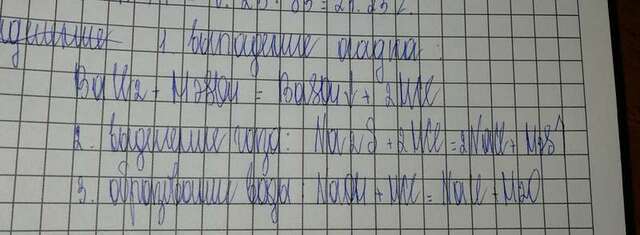 1 выпадение осадка:
BaCl2 + H2SO4 = BaSO4↓ + 2HCl
2. выделение газа: Na2S + 2HCl = 2NaCl + H2S↑
3. образование воды: NaOH + HCl = NaCl + H2O